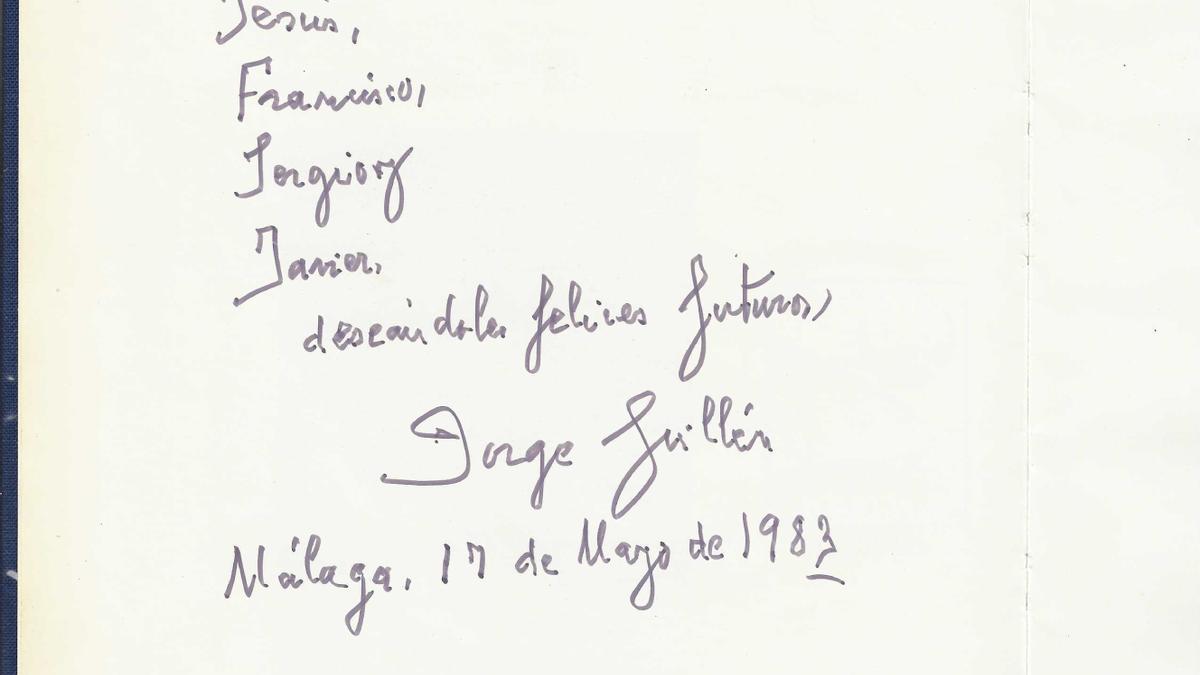 Jesús,
Francisco,
Sergio y
Javier,
deseándoles felices futuros,
Jorge Guillén
Málaga, 17 de Mayo de 1983